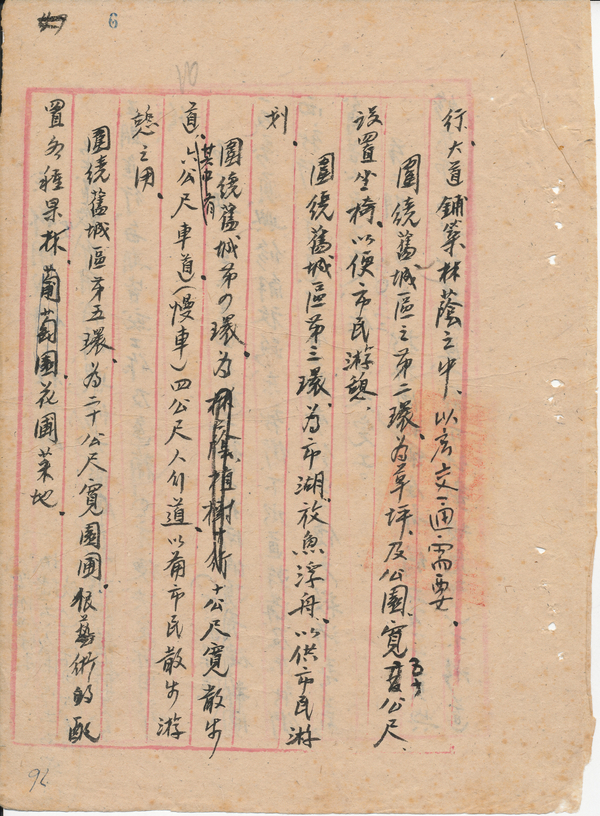 6
行大道鋪築林蔭之中，以應交通需要。
圍繞舊城區之第二環，為草坪及公園，寬五十公尺、
設置坐椅，以便市民游憩。
圍繞舊城區第三環，為市湖，放魚浮舟，以供市民游
划。
圍繞舊城第四環，為十公尺寬散步
道，其中有六公尺車道（慢車）四公尺人行道以備市民散步游
憩之用。
圍繞舊城區第五環，為二十公尺寬園圃，很藝術的配
置各種果林，葡萄園，花圃菜地。
92